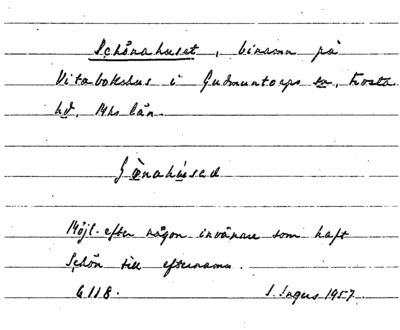 Schönahuset, binamn på
Vitabokshus i Gudmuntorps sn, Frosta
hd, Mhs län.
Möjl. efter någon invånare som haft
Schön till efternamn.
6118. I. Ingers 1957.